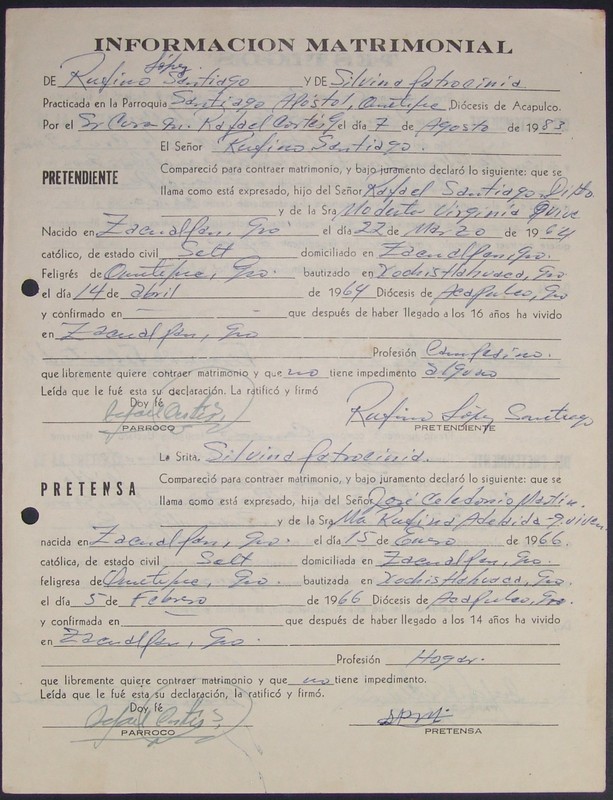 INFORMACION MATRIMONIAL
López
DE Rufino Santiago Y DE Silvina Patrocinia
Practicada en la Parroquia Santiago Apóstol, Ometepec, Diócesis de Acapulco.
Por el Sr Cura Rafael Cortés G. el día 7 de Agosto de 1983
El Señor Rufino Santiago.
PRETENDIENTE
Compareció para contraer matrimonio, y bajo juramento declaró lo siguiente: que se
llama como está expresado, hijo del Señor Rafael Santiago
y de la Sra. Modesta Virginia q vive
Nacido en Zacualpan, Gro el día 22 de Marzo de 1964
católico, de estado civil Solt domiciliado en Zacualpan, Gro.
Feligrés de Ometepec, Gro. bautizado en Xochistlahuaca, Gro
el día 14 de abril de 1964 Diócesis de Acapulco, Gro
y confirmado en que después de haber llegado a los 16 años ha vivido
en Zacualpan, Gro
Profesión Campesino.
que libremente quiere contraer matrimonio y que no tiene impedimento alguno
Leída que le fué esta su declaración. La ratificó y firmó
Doy fé
Rafael Cortés G. Rufino López Santiago
PARROCO PRETENDIENTE
La Srita. Silvina Patrocinia.
PRETENSA
Compareció para contraer matrimonio, y bajo juramento declaró lo siguiente: que se
llama como está expresado, hija del Señor José Celedonio Martín.
y de la Sra. Ma Rufina Adelaida q. viven
nacida en Zacualpan, Gro. el día 15 de Enero de 1966.
católica, de estado civil Solt domiciliada en Zacualpan, Gro.
feligresa de Ometepec, Gro. bautizada en Xochistlahuaca, Gro.
el día 5 de Febrero de 1966 Diócesis de Acapulco, Gro.
y confirmada en que después de haber llegado a los 14 años ha vivido
en Zacualpan, Gro.
Profesión Hogar.
que libremente quiere contraer matrimonio y que no tiene impedimento.
Leída que le fué esta su declaración, la ratificó y firmó.
Doy fé
Rafael Cortés G.
PARROCO PRETENSA